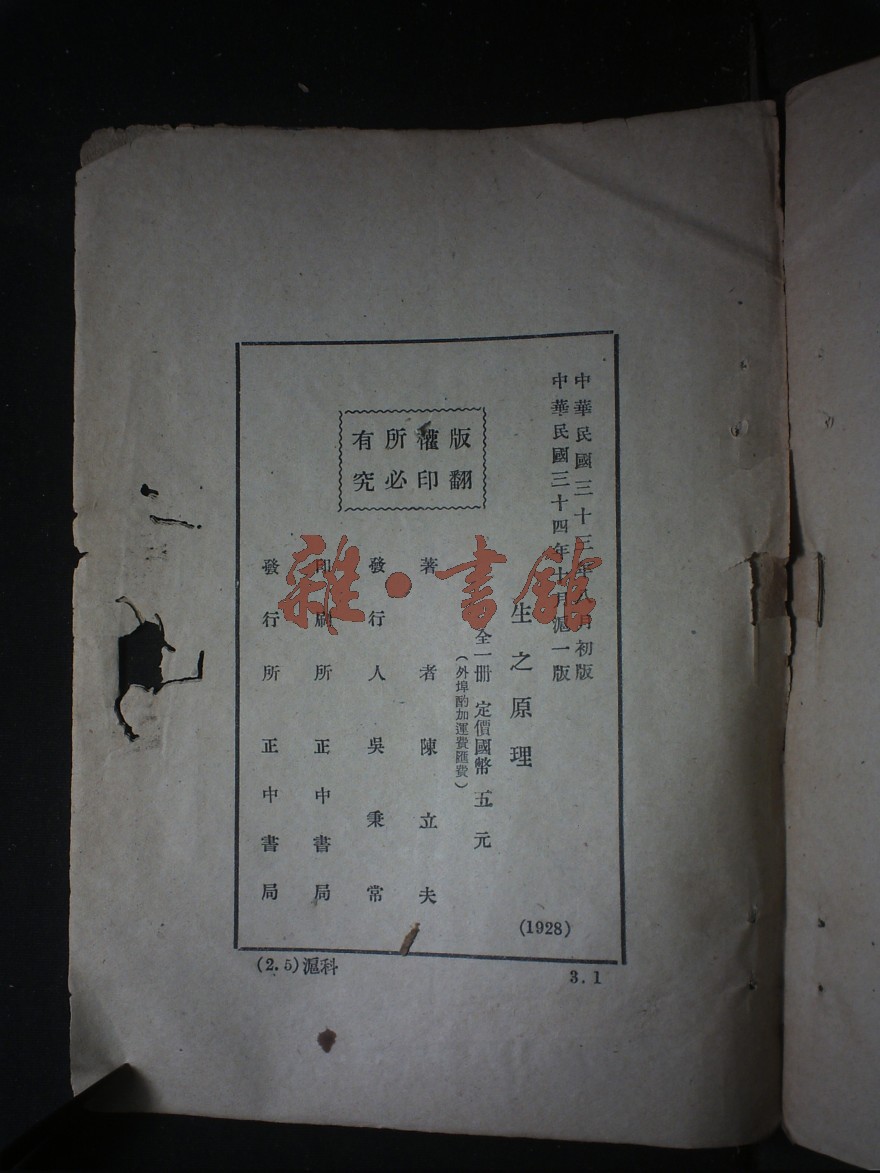 中華民國三十三年月初版
中華民國三十四年十月滬一版
生之原理
(1928)
全一册 定價國幣五元
(外埠酌加運費匯費)
版權所有
翻印必究
著者 陳立夫
發行人 吳秉常
印刷所 正中書局
發行所 正中書局
3.1
(2.5)滬科
雜·書館